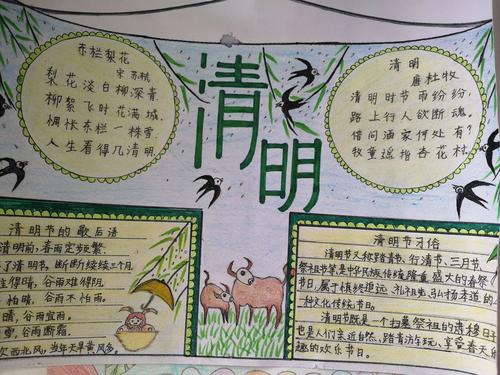 东栏梨花
宋苏轼
梨花淡白柳深青
柳絮飞时花满城
惆怅东栏一株雪
人生看得几清明
清明
清明
唐杜牧
清明时节雨纷纷
路上行人欲断魂。
借问酒家何处有？
牧童遥指杏花村
清明节的歌后语
清明前，春雨定频繁。
了清明雪，断断续续三个月
得清，谷雨难得阴
怕晴，谷雨不怕雨。
晴，谷雨宜雨。
雪，谷雨断霜。
西北风，当年天旱黄风多
清明节习俗
清明节又称踏青节、行清节、三月节、
祭祖节等，是中华民族传统隆重盛大的春祭
节日，属于慎终追远、礼祖敬、弘扬孝道的
一种文化传统节日。
清明节既是一个扫墓祭祖的肃穆日
也是人们亲近自然、踏青游玩、享受春天
趣的欢乐节日。